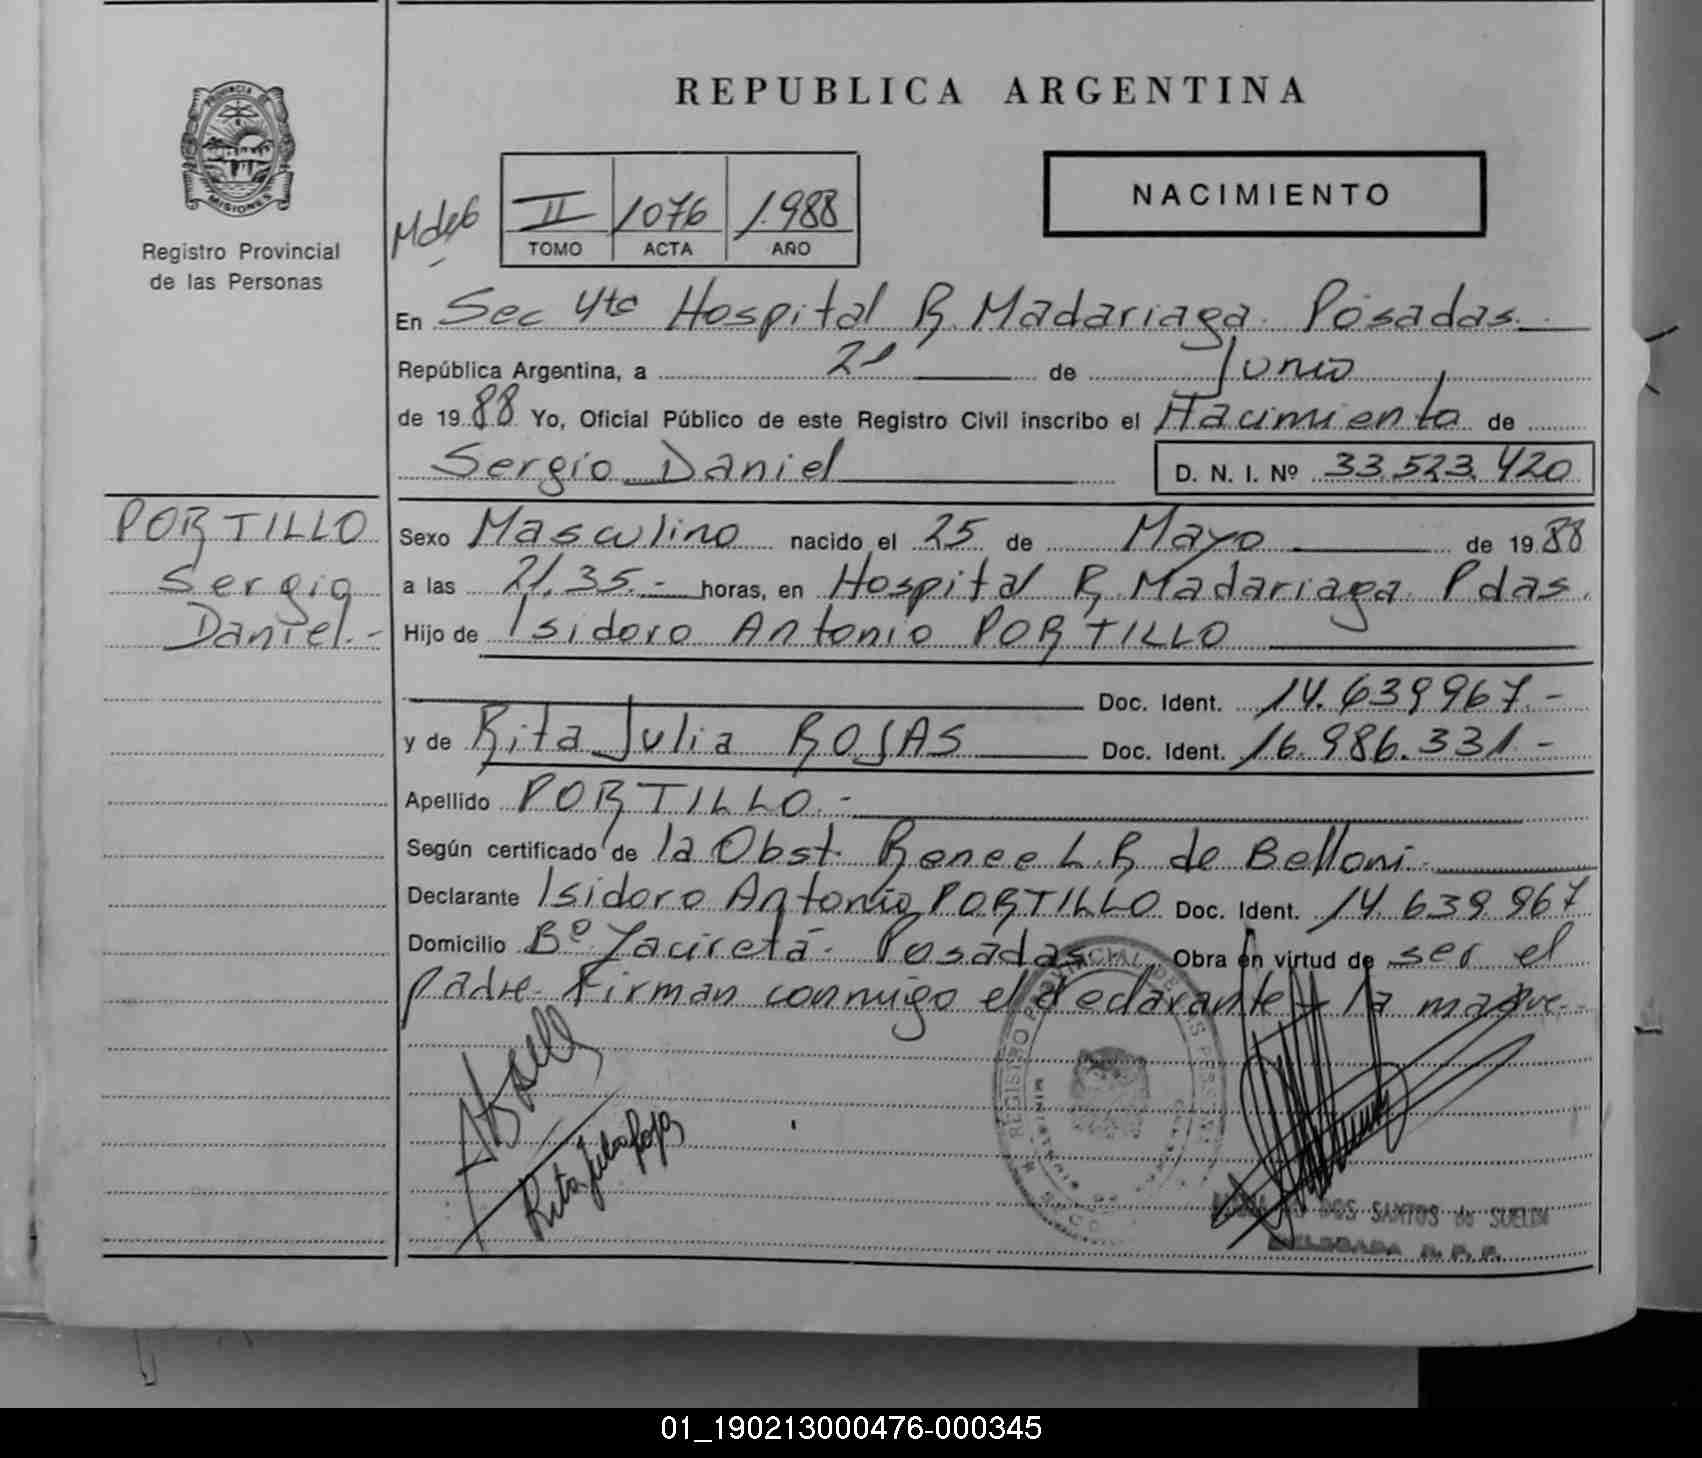 REPUBLICA ARGENTINA
PROVINCIA DE
MISIONES
Registro Provincial
de las Personas
NACIMIENTO
II 1076 1.988
TOMO ACTA AÑO
En Sec 4ta Hospital R. Madariaga. Posadas.
República Argentina, a 21 de Junio
de 1988 Yo, Oficial Público de este Registro Civil inscribo el Nacimiento de
Sergio Daniel D. N. I. Nº 33.523.420
PORTILLO
Sergio
Daniel.-
Sexo Masculino nacido el 25 de Mayo de 1988
a las 21.35.- horas, en Hospital R. Madariaga Pdas.
Hijo de Isidoro Antonio PORTILLO
Doc. Ident. 14.639967.-
y de Rita Julia ROJAS Doc. Ident. 16.986.331.-
Apellido PORTILLO.-
Según certificado de la Obst. Renee L. R. de Belloni.
Declarante Isidoro Antonio PORTILLO Doc. Ident. 14.639.967
Domicilio Bº Yacireta- Posadas Obra en virtud de ser el
padre. Firman conmigo el declarante y la madre.-
Rita Julia Rojas
REGISTRO PROVINCIAL DE LAS PERSONAS
MINISTERIO DE
DOS SANTOS de SUELDI
DELEGADA R. P. P.
01_190213000476-000345